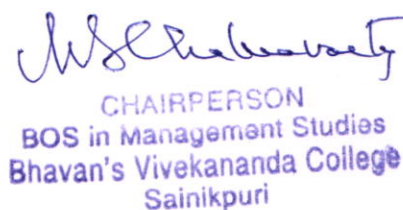 CHAIRPERSON
BOS in Management Studies
Bhavan's Vivekananda College
Sainikpuri